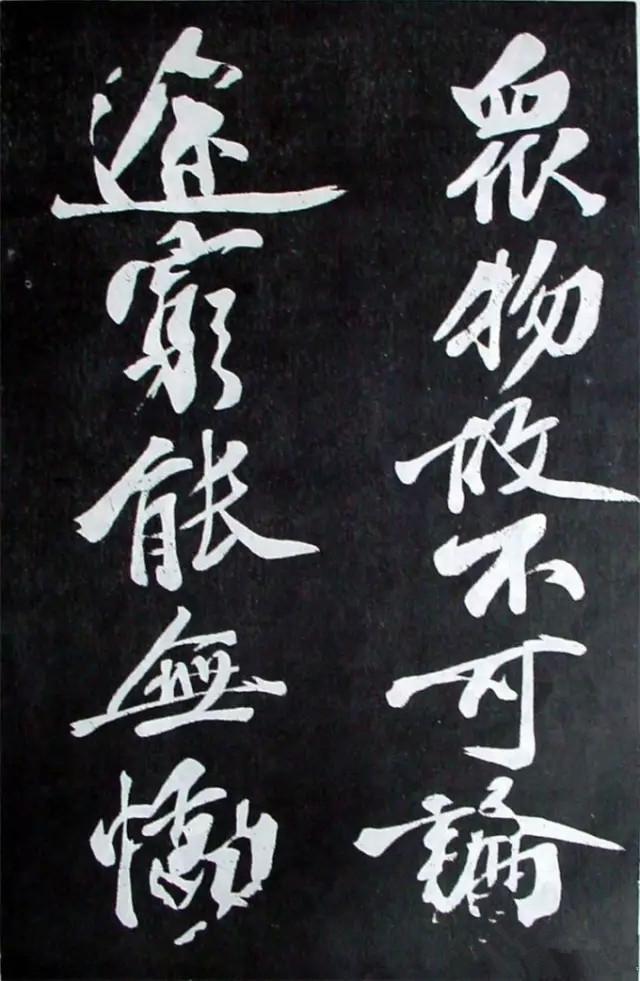 眾物故不可論
途窮能無慟